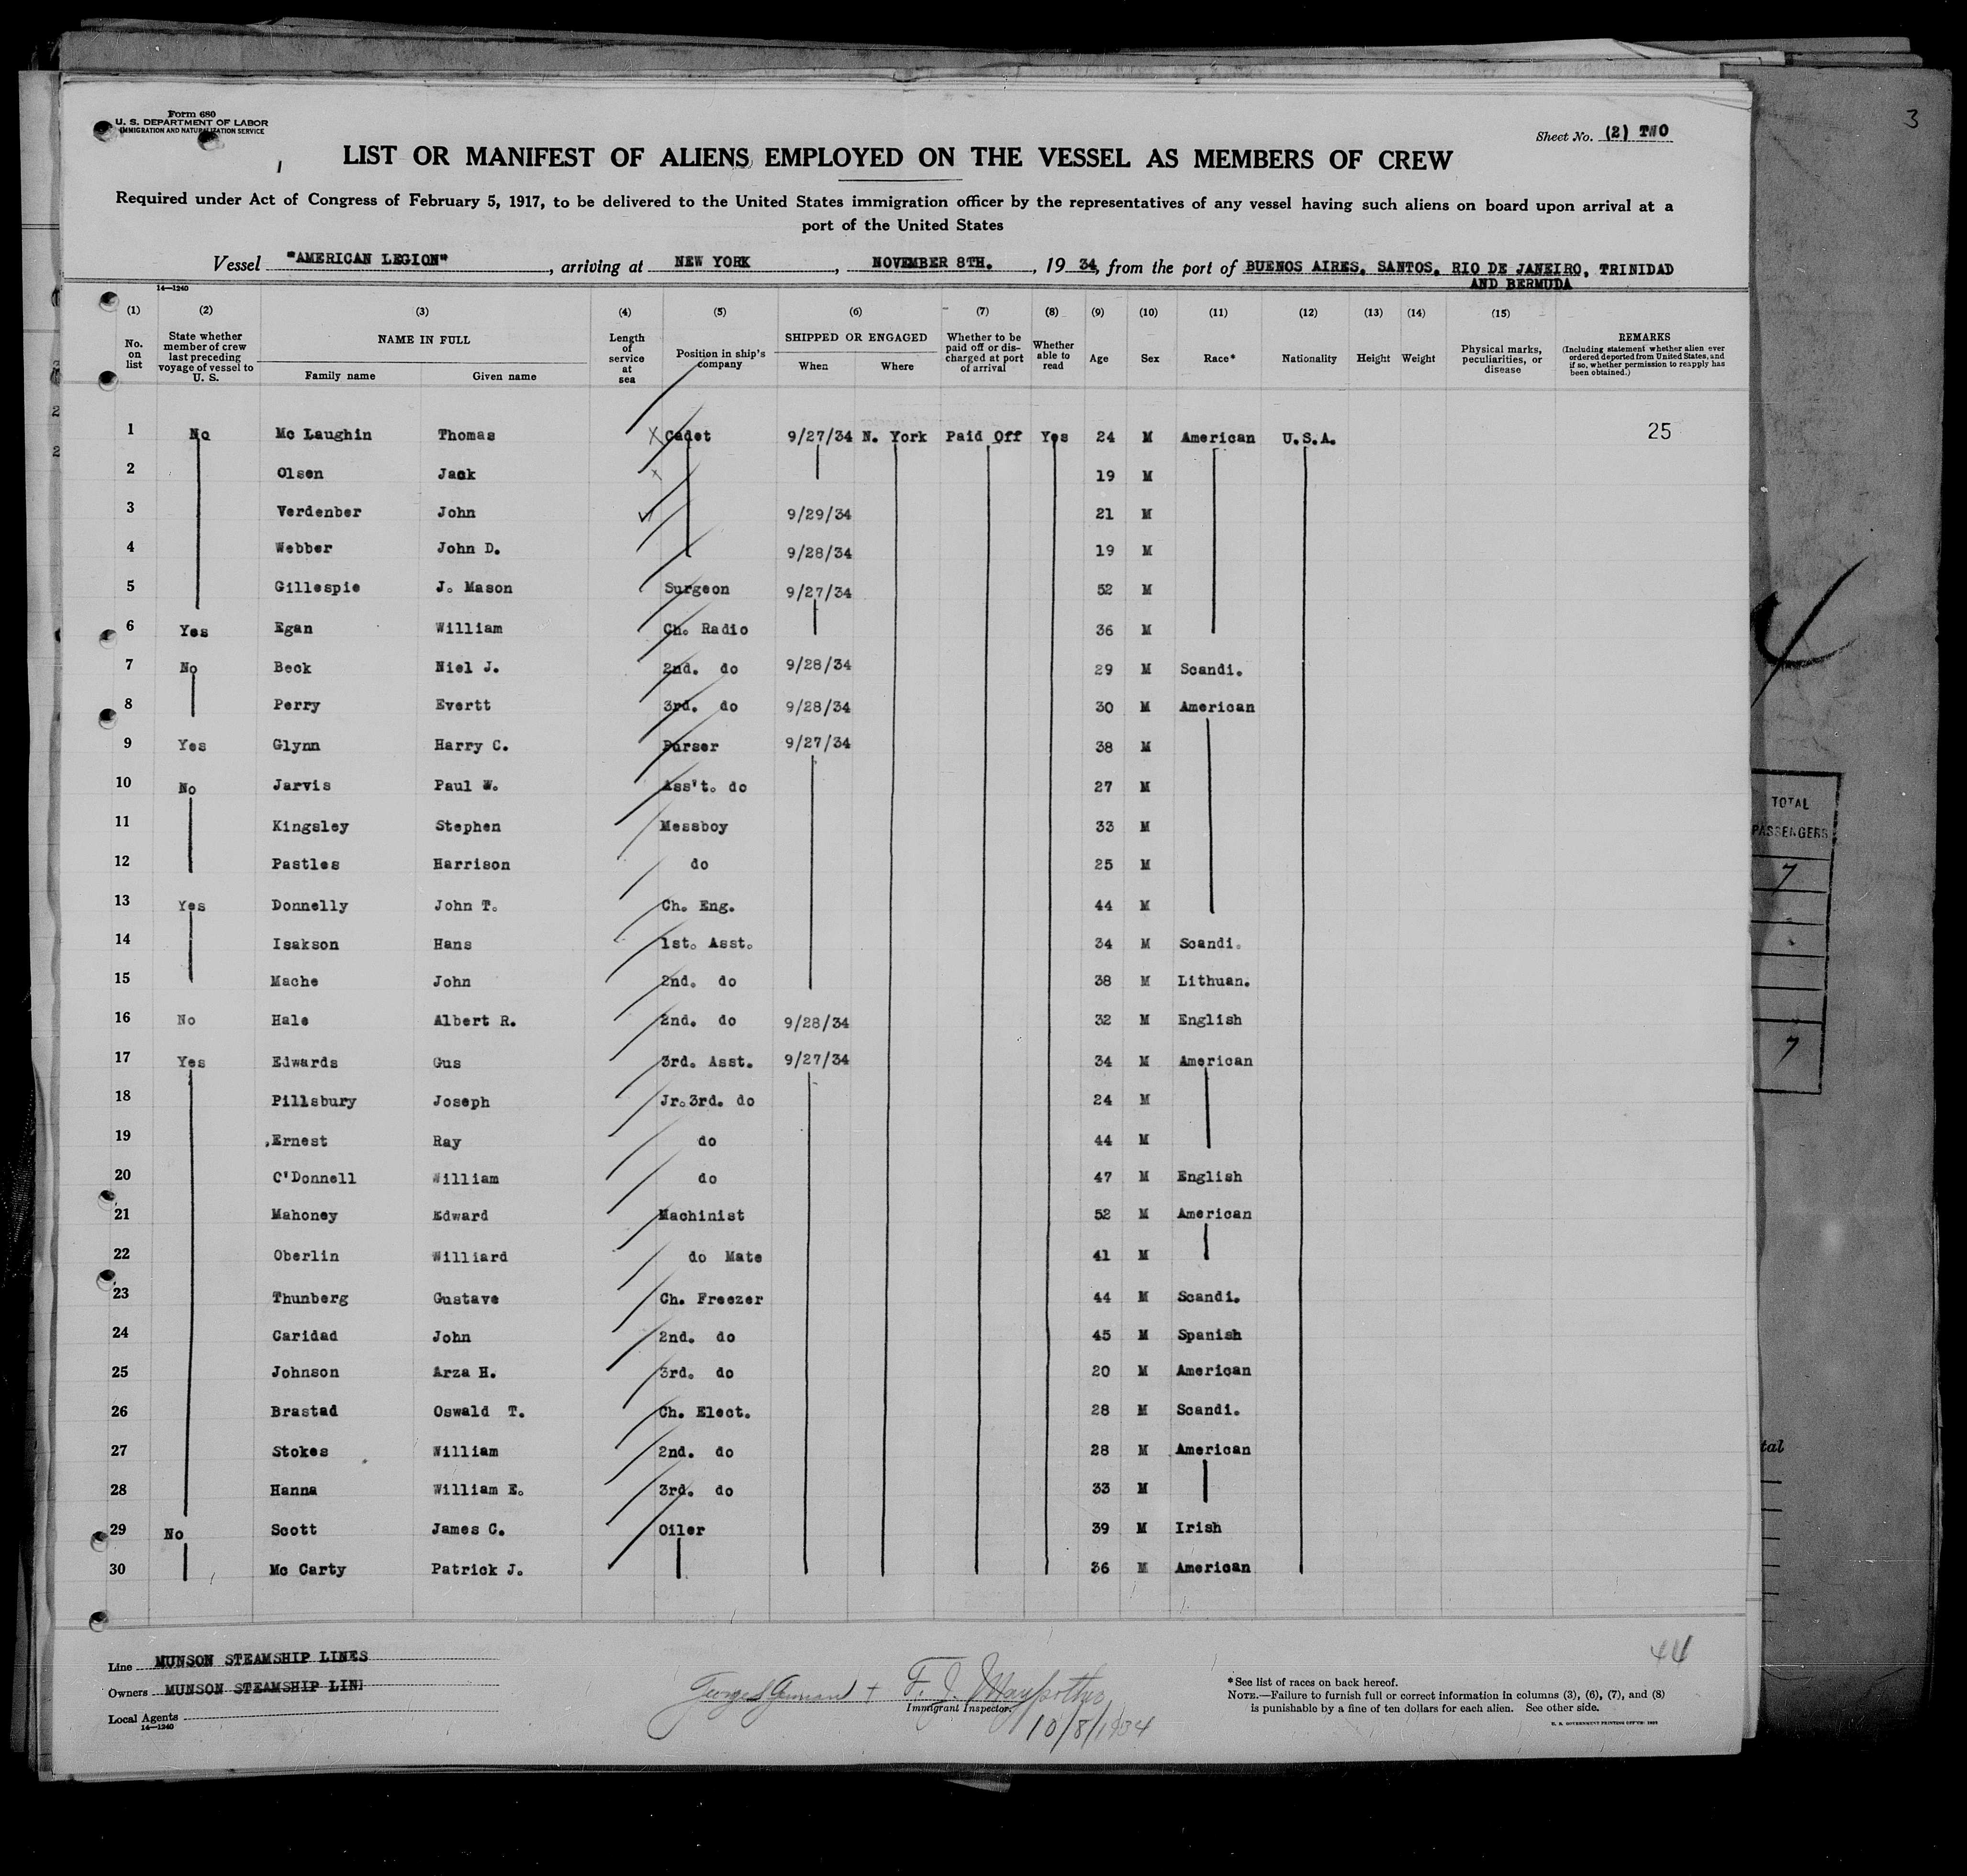 Form 680
U. S. DEPARTMENT OF LABOR
IMMIGRATION AND NATURALIZATION SERVICE
Sheet No. (2) TWO
3
LIST OR MANIFEST OF ALIENS EMPLOYED ON THE VESSEL AS MEMBERS OF CREW
Required under Act of Congress of February 5, 1917, to be delivered to the United States immigration officer by the representatives of any vessel having such aliens on board upon arrival at a
port of the United States
Vessel "AMERICAN LEGION", arriving at NEW YORK, NOVEMBER 8TH., 1934, from the port of BUENOS AIRES, SANTOS, RIO DE JANEIRO, TRINIDAD
AND BERMUDA
14—1240
(1) (2) (3) (4) (5) (6) (7) (8) (9) (10) (11) (12) (13) (14) (15)
No. on list State whether member of crew last preceding voyage of vessel to U. S. NAME IN FULL Family name Given name Length of service at sea Position in ship's company SHIPPED OR ENGAGED When Where Whether to be paid off or discharged at port of arrival Whether able to read Age Sex Race* Nationality Height Weight Physical marks, peculiarities, or disease REMARKS (Including statement whether alien ever ordered deported from United States, and if so, whether permission to reapply has been obtained.)
1 No Mc Laughin Thomas Cadet 9/27/34 N. York Paid Off Yes 24 M American U.S.A. 25
2 Olsen Jack 19 M
3 Verdenber John 9/29/34 21 M
4 Webber John D. 9/28/34 19 M
5 Gillespie J. Mason Surgeon 9/27/34 52 M
6 Yes Egan William Ch. Radio 36 M
7 No Beck Niel J. 2nd. do 9/28/34 29 M Scandi.
8 Perry Evertt 3rd. do 9/28/34 30 M American
9 Yes Glynn Harry C. Purser 9/27/34 38 M
10 No Jarvis Paul W. Ass't. do 27 M
11 Kingsley Stephen Messboy 33 M
12 Pastles Harrison do 25 M
13 Yes Donnelly John T. Ch. Eng. 44 M
14 Isakson Hans 1st. Asst. 34 M Scandi.
15 Mache John 2nd. do 38 M Lithuan.
16 No Hale Albert R. 2nd. do 9/28/34 32 M English
17 Yes Edwards Gus 3rd. Asst. 9/27/34 34 M American
18 Pillsbury Joseph Jr.3rd. do 24 M
19 Ernest Ray do 44 M
20 O'Donnell William do 47 M English
21 Mahoney Edward Machinist 52 M American
22 Oberlin Williard do Mate 41 M
23 Thunberg Gustave Ch. Freezer 44 M Scandi.
24 Caridad John 2nd. do 45 M Spanish
25 Johnson Arza H. 3rd. do 20 M American
26 Brastad Oswald T. Ch. Elect. 28 M Scandi.
27 Stokes William 2nd. do 28 M American
28 Hanna William E. 3rd. do 33 M
29 No Scott James C. Oiler 39 M Irish
30 Mc Carty Patrick J. 36 M American
TOTAL
PASSENGERS
7
7
tal
44
Line MUNSON STEAMSHIP LINES
Owners MUNSON STEAMSHIP LINE
Local Agents
14—1240
Immigrant Inspector.
10/8/1934
*See list of races on back hereof.
NOTE.—Failure to furnish full or correct information in columns (3), (6), (7), and (8)
is punishable by a fine of ten dollars for each alien. See other side.